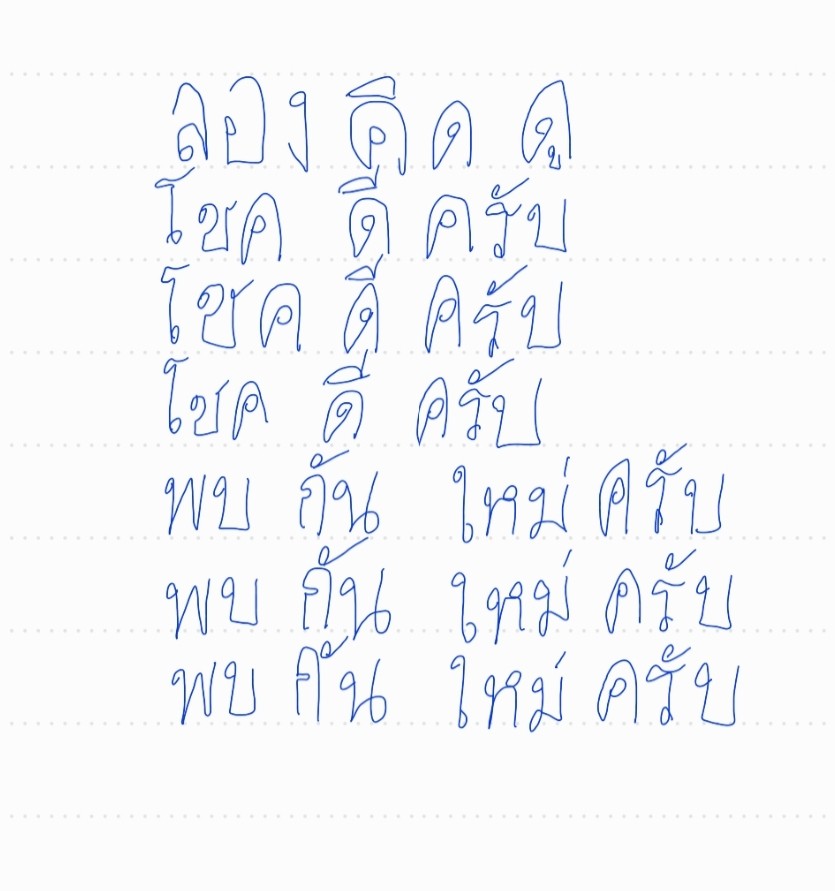 ลอง คิด ดู
โชค ดี ครับ
โชค ดี ครับ
โชค ดี ครับ
พบ กัน ใหม่ ครับ
พบ กัน ใหม่ ครับ
พบ กัน ใหม่ ครับ